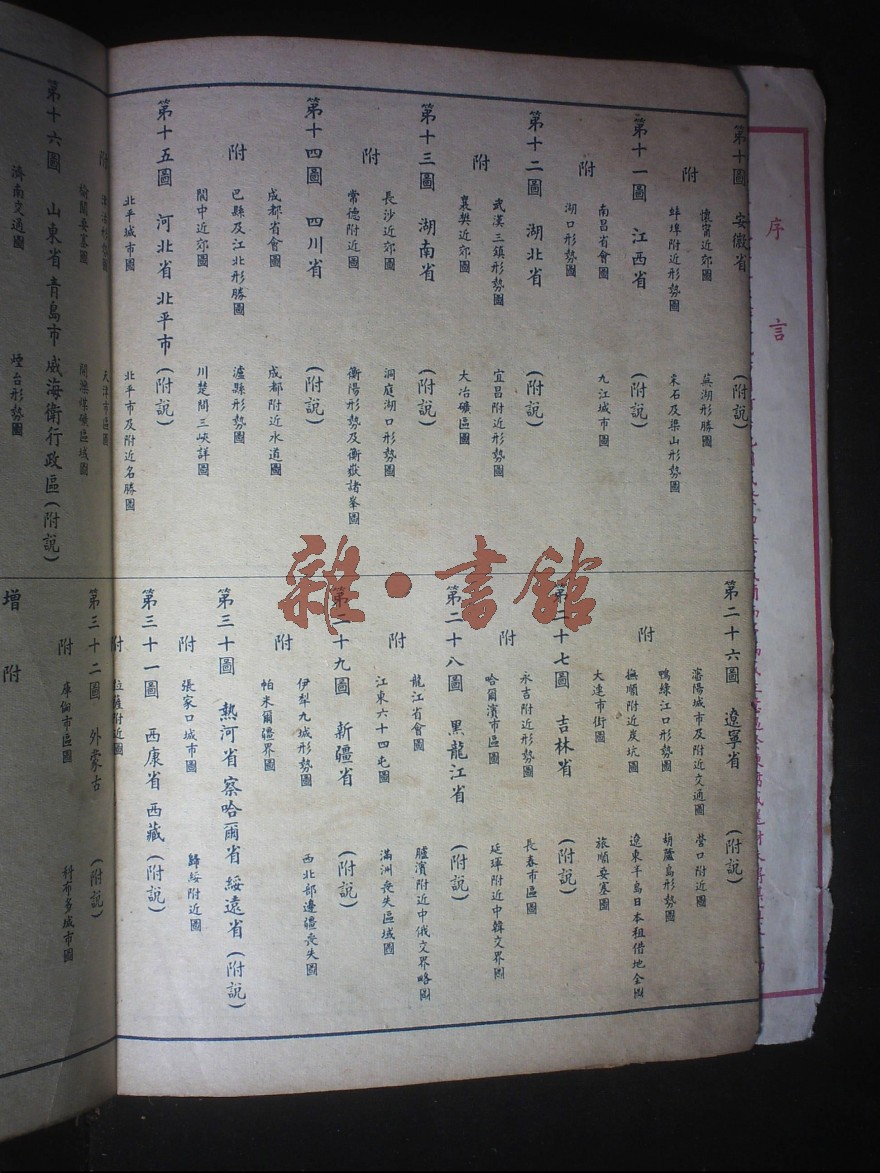 序言
第十圖 安徽省 (附說)
附
懷甯近郊圖 蕪湖形勝圖
蚌埠附近形勢圖 采石及梁山形勢圖
第十一圖 江西省 (附說)
南昌省會圖 九江城市圖
附
湖口形勢圖
第十二圖 湖北省 (附說)
武漢三鎮形勢圖 宜昌附近形勢圖
附
襄樊近郊圖 大冶礦區圖
第十三圖 湖南省 (附說)
長沙近郊圖 洞庭湖口形勢圖
附
常德附近圖 衡陽形勢及衡嶽諸峯圖
第十四圖 四川省 (附說)
成都省會圖 成都附近水道圖
附
巴縣及江北形勝圖 瀘縣形勢圖
閬中近郊圖 川楚間三峽詳圖
第十五圖 河北省 北平市 (附說)
北平城市圖 北平市及附近名勝圖
附
天津市區圖
榆關要塞圖 開灤煤礦區域圖
第十六圖 山東省 青島市 威海衛行政區 (附說)
濟南交通圖 煙台形勢圖
第二十六圖 遼寧省 (附說)
瀋陽城市及附近交通圖 營口附近圖
鴨綠江口形勢圖 葫蘆島形勢圖
附
撫順附近炭坑圖 遼東半島日本租借地全圖
大連市街圖 旅順要塞圖
第二十七圖 吉林省 (附說)
永吉附近形勢圖 長春市區圖
附
哈爾濱市區圖 延琿附近中韓交界圖
第二十八圖 黑龍江省 (附說)
龍江省會圖 臚濱附近中俄交界略圖
附
江東六十四屯圖 滿洲喪失區域圖
第二十九圖 新疆省 (附說)
伊犁九城形勢圖 西北部邊疆喪失圖
附
帕米爾疆界圖
第三十圖 熱河省 察哈爾省 綏遠省 (附說)
附
張家口城市圖 歸綏附近圖
第三十一圖 西康省 西藏 (附說)
附
拉薩附近圖
第三十二圖 外蒙古 (附說)
附
庫倫市區圖 科布多城市圖
增附
雜·書館